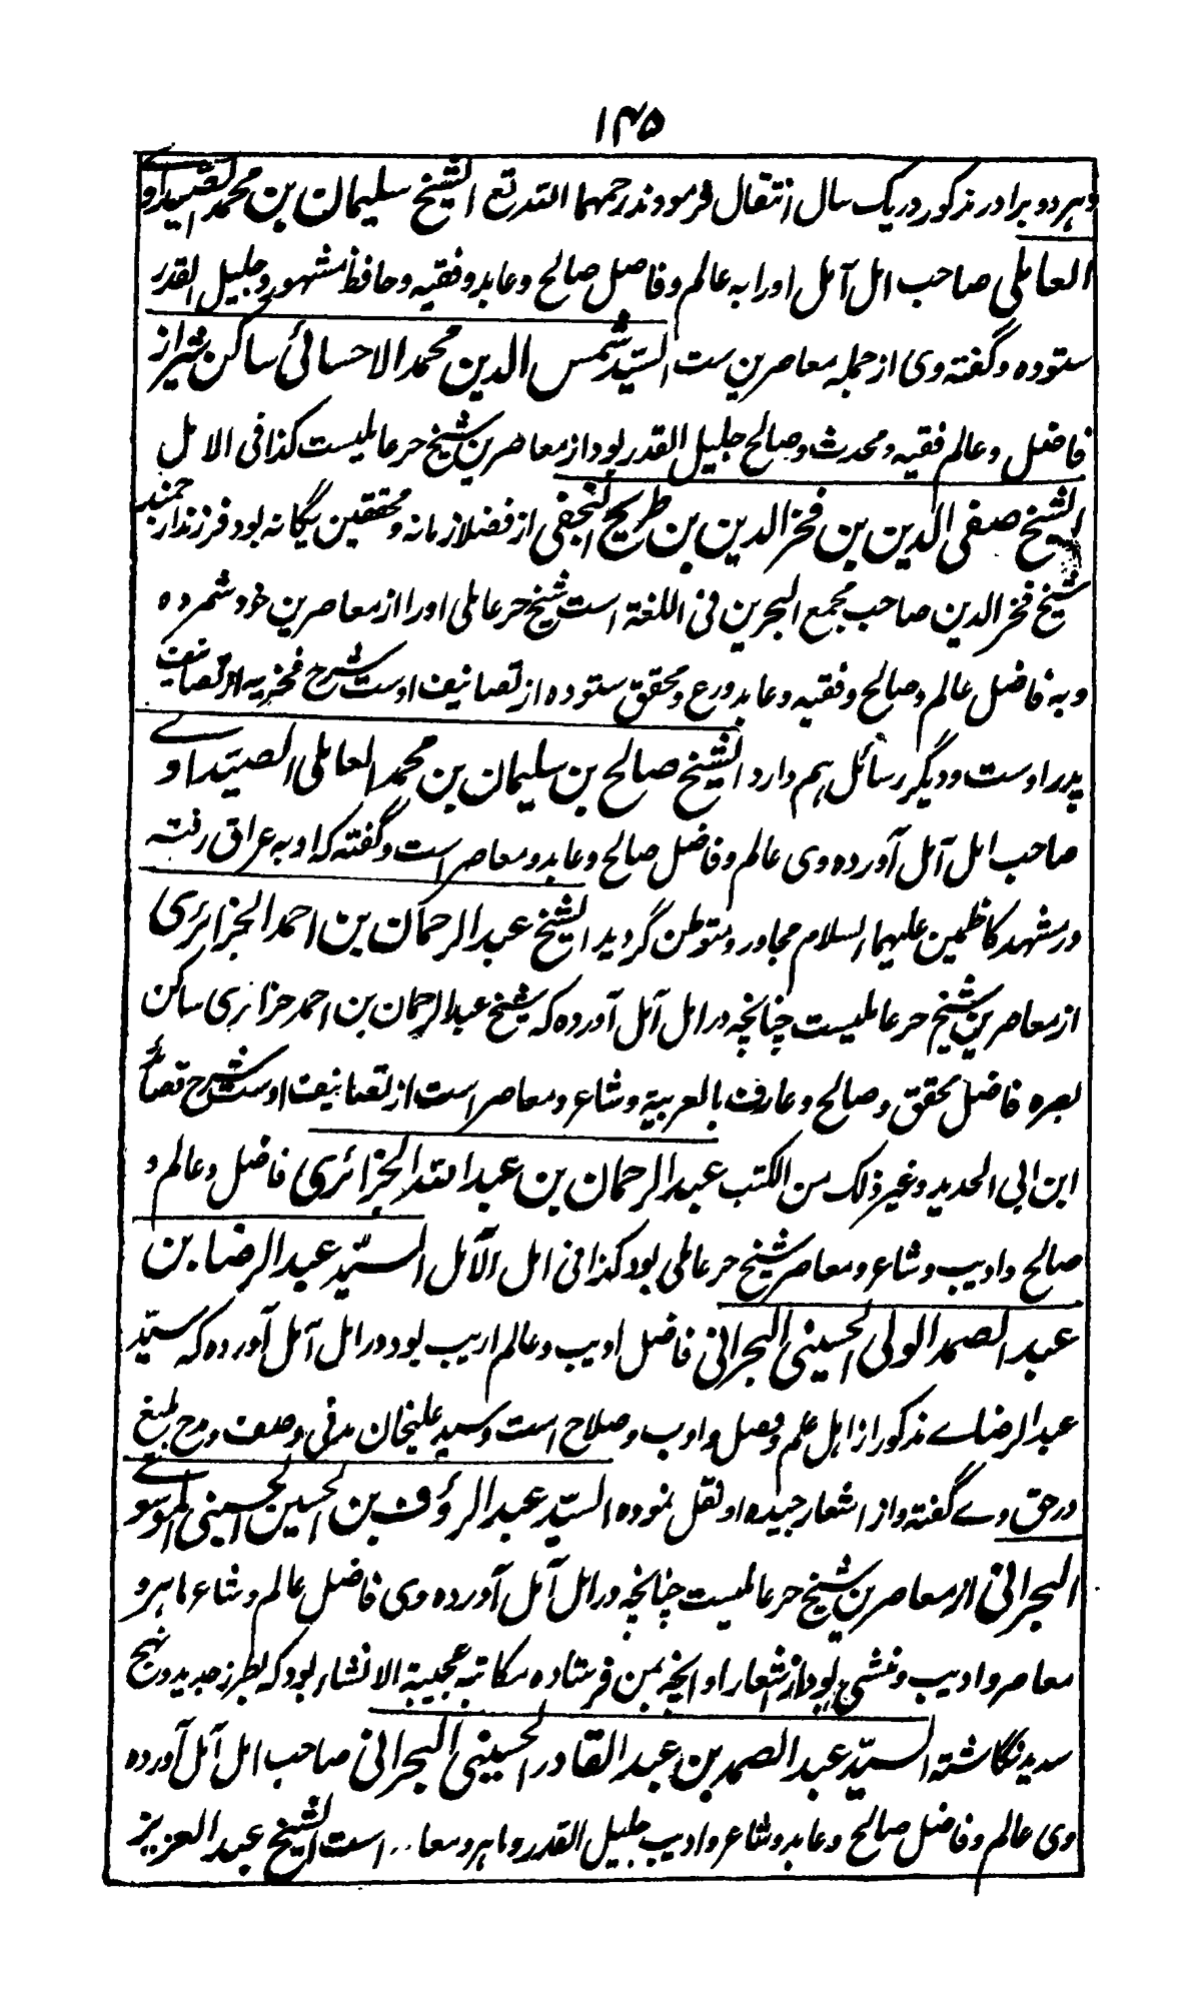 ۱۴۵
و هر دو برادر مذکور در یک سال انتقال فرمودند رحمهما الله تع الشیخ سلیمان بن محمد الصیداوی
العاملی صاحب امل آمل اورا به عالم و فاضل صالح و عابد و فقیه و حافظ مشهور و جلیل القدر
ستوده و گفته وی از جمله معاصرین ست السید شمس الدین محمد الاحسائی ساکن شیراز
فاضل و عالم فقیه و محدث و صالح جلیل القدر بود از معاصرین شیخ حر عاملیست کذا فی الامل
الشیخ صفی الدین بن فخر الدین بن طریح النجفی از فضلا زمانه و محققین یگانه بود فرزند ارجمند
شیخ فخر الدین صاحب مجمع البحرین فی اللغة است شیخ حر عاملی اورا از معاصرین خود شمرده
و به فاضل عالم و صالح و فقیه و عابد ورع و محقق ستوده از تصانیف اوست شرح فخریه از تصانیف
پدر اوست و دیگر رسائل هم دارد الشیخ صالح بن سلیمان بن محمد العاملی الصیداوے
صاحب امل آمل آورده وی عالم و فاضل صالح و عابد و معاصر است و گفته که او به عراق رفته
در مشهد کاظمین علیهما السلام مجاور و متوطن گردید الشیخ عبد الرحمان بن احمد الجزایری
از معاصرین شیخ حر عاملیست چنانچه در امل آمل آورده که شیخ عبد الرحمان بن احمد جزائری ساکن
بصره فاضل محقق و صالح و عارف بالعربیة و شاعر و معاصر است از تصانیف اوست شرح قصائد
ابن ابی الحدید و غیر ذلک من الکتب عبد الرحمان بن عبد الله الجزائری فاضل و عالم و
صالح و ادیب و شاعر و معاصر شیخ حر عاملی بود کذا فی امل الآمل السید عبد الرضا بن
عبد الصمد الولی الحسینی البحرانی فاضل ادیب و عالم اریب بود در امل آمل آورده که سید
عبد الرضاے مذکور از اهل علم و فضل و ادب و صلاح است و سید علیخان مدنی وصف و مدح بلیغ
در حق وے گفته و از اشعار جیده او نقل نموده السید عبد الرؤف بن الحسین الحسینی الموسوے
البحرانی از معاصرین شیخ حر عاملیست چنانچه در امل آمل آورده وی فاضل عالم و شاعر ماهر و
معاصر و ادیب و منشی بود از اشعار او انچه بمن فرستاده مکاتبه عجیبة الانشاء بود که بطرز جدید و نهج
سدید نگاشته السید عبد الصمد بن عبد القادر الحسینی البحرانی صاحب امل آمل آورده
وی عالم و فاضل صالح و عابد و شاعر و ادیب جلیل القدر و ماهر و معا.. است الشیخ عبد العزیز